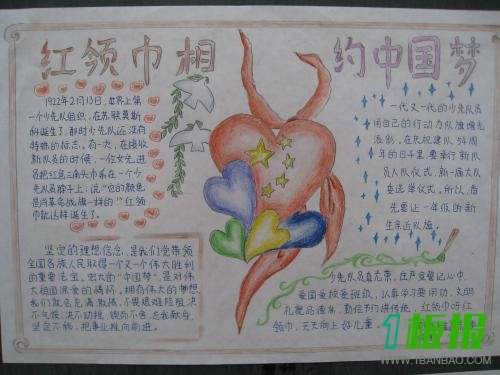 红领巾相约中国梦
1922年2月13日,世界上第
一个少先队组织,在苏联莫斯
科诞生了,那时少先队还没有
特殊的标志。有一次,在接收
新队员的时候,一位女先进
员把红色三角头巾系在一个少
先队员脖子上;说"它的颜色
是与革命战旗一样的""红领
巾就这样诞生了。
一代又一代的少先队员
用自己的行动为队旗增光
添彩,在庆祝建队
年的日子里,要举行新队
员入队仪式,新一届大队
委选举仪式。所以,首
先要让一年级的新
生亲近队旗。
坚定的理想信念,是我们党带领
全国各族人民取得一个又一个伟大胜利
的重要法宝,宏大的"中国梦",是对伟大
祖国深爱的情怀。拥有伟大的梦想
我们就会充满激情,不畏艰难险阻决
不气馁,决不动摇,锲而不舍,忘我献身,
坚定不移,把事业推向前进。
少先队员真光荣,庄严宣誓记心中。
爱国爱校爱班级,认真学习要用功。文明
礼貌品德高,勤俭节约讲传统,红领巾呀红
领巾,天天向上好儿童。
1板报
WWW.1BANBAO.COM